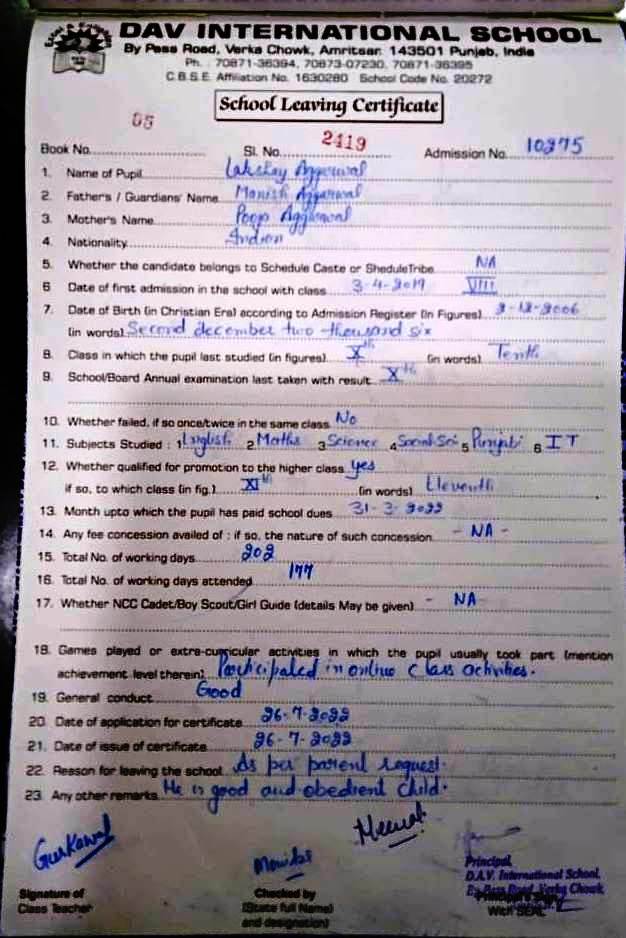 DAV INTERNATIONAL SCHOOL
By Pass Road, Verka Chowk, Amritsar 143501 Punjab, India
Ph. : 70871-36394, 70873-07230, 70871-36395
C.B.S.E. Affiliation No. 1630280 School Code No. 20272
School Leaving Certificate
Book No. 05 Sl. No. 2419 Admission No. 10275
1. Name of Pupil Lakshay Aggarwal
2. Father's / Guardians' Name Manish Aggarwal
3. Mother's Name Pooja Aggarwal
4. Nationality Indian
5. Whether the candidate belongs to Schedule Caste or SheduleTribe NA
6 Date of first admission in the school with class 3-4-2019 VIII
7. Date of Birth (in Christian Era) according to Admission Register (in Figures) 2-12-2006
(in words) Second december two thousand six
8. Class in which the pupil last studied (in figures) Xth (in words) Tenth
9. School/Board Annual examination last taken with result Xth
10. Whether failed, if so once/twice in the same class No
11. Subjects Studied : 1 English 2 Maths 3 Science 4 Social Sci 5 Punjabi 6 IT
12. Whether qualified for promotion to the higher class yes
if so, to which class (in fig.) XIth (in words) Eleventh
13. Month upto which the pupil has paid school dues 31-3-2022
14. Any fee concession availed of : if so, the nature of such concession - NA -
15. Total No. of working days 202
16. Total No. of working days attended 177
17. Whether NCC Cadet/Boy Scout/Girl Guide (details May be given) - NA -
18. Games played or extra-curricular activities in which the pupil usually took part (mention
achievement level therein) Participated in online class activities.
19. General conduct Good
20. Date of application for certificate 26-7-2022
21. Date of issue of certificate 26-7-2022
22. Reason for leaving the school As per parent request.
23. Any other remarks He is good and obedient child.
Gurkawal
Principal,
D.A.V. International School,
By Pass Road, Verka Chowk,
Signature of Checked by
Class Teacher (State full Name) With SEAL
and designation)